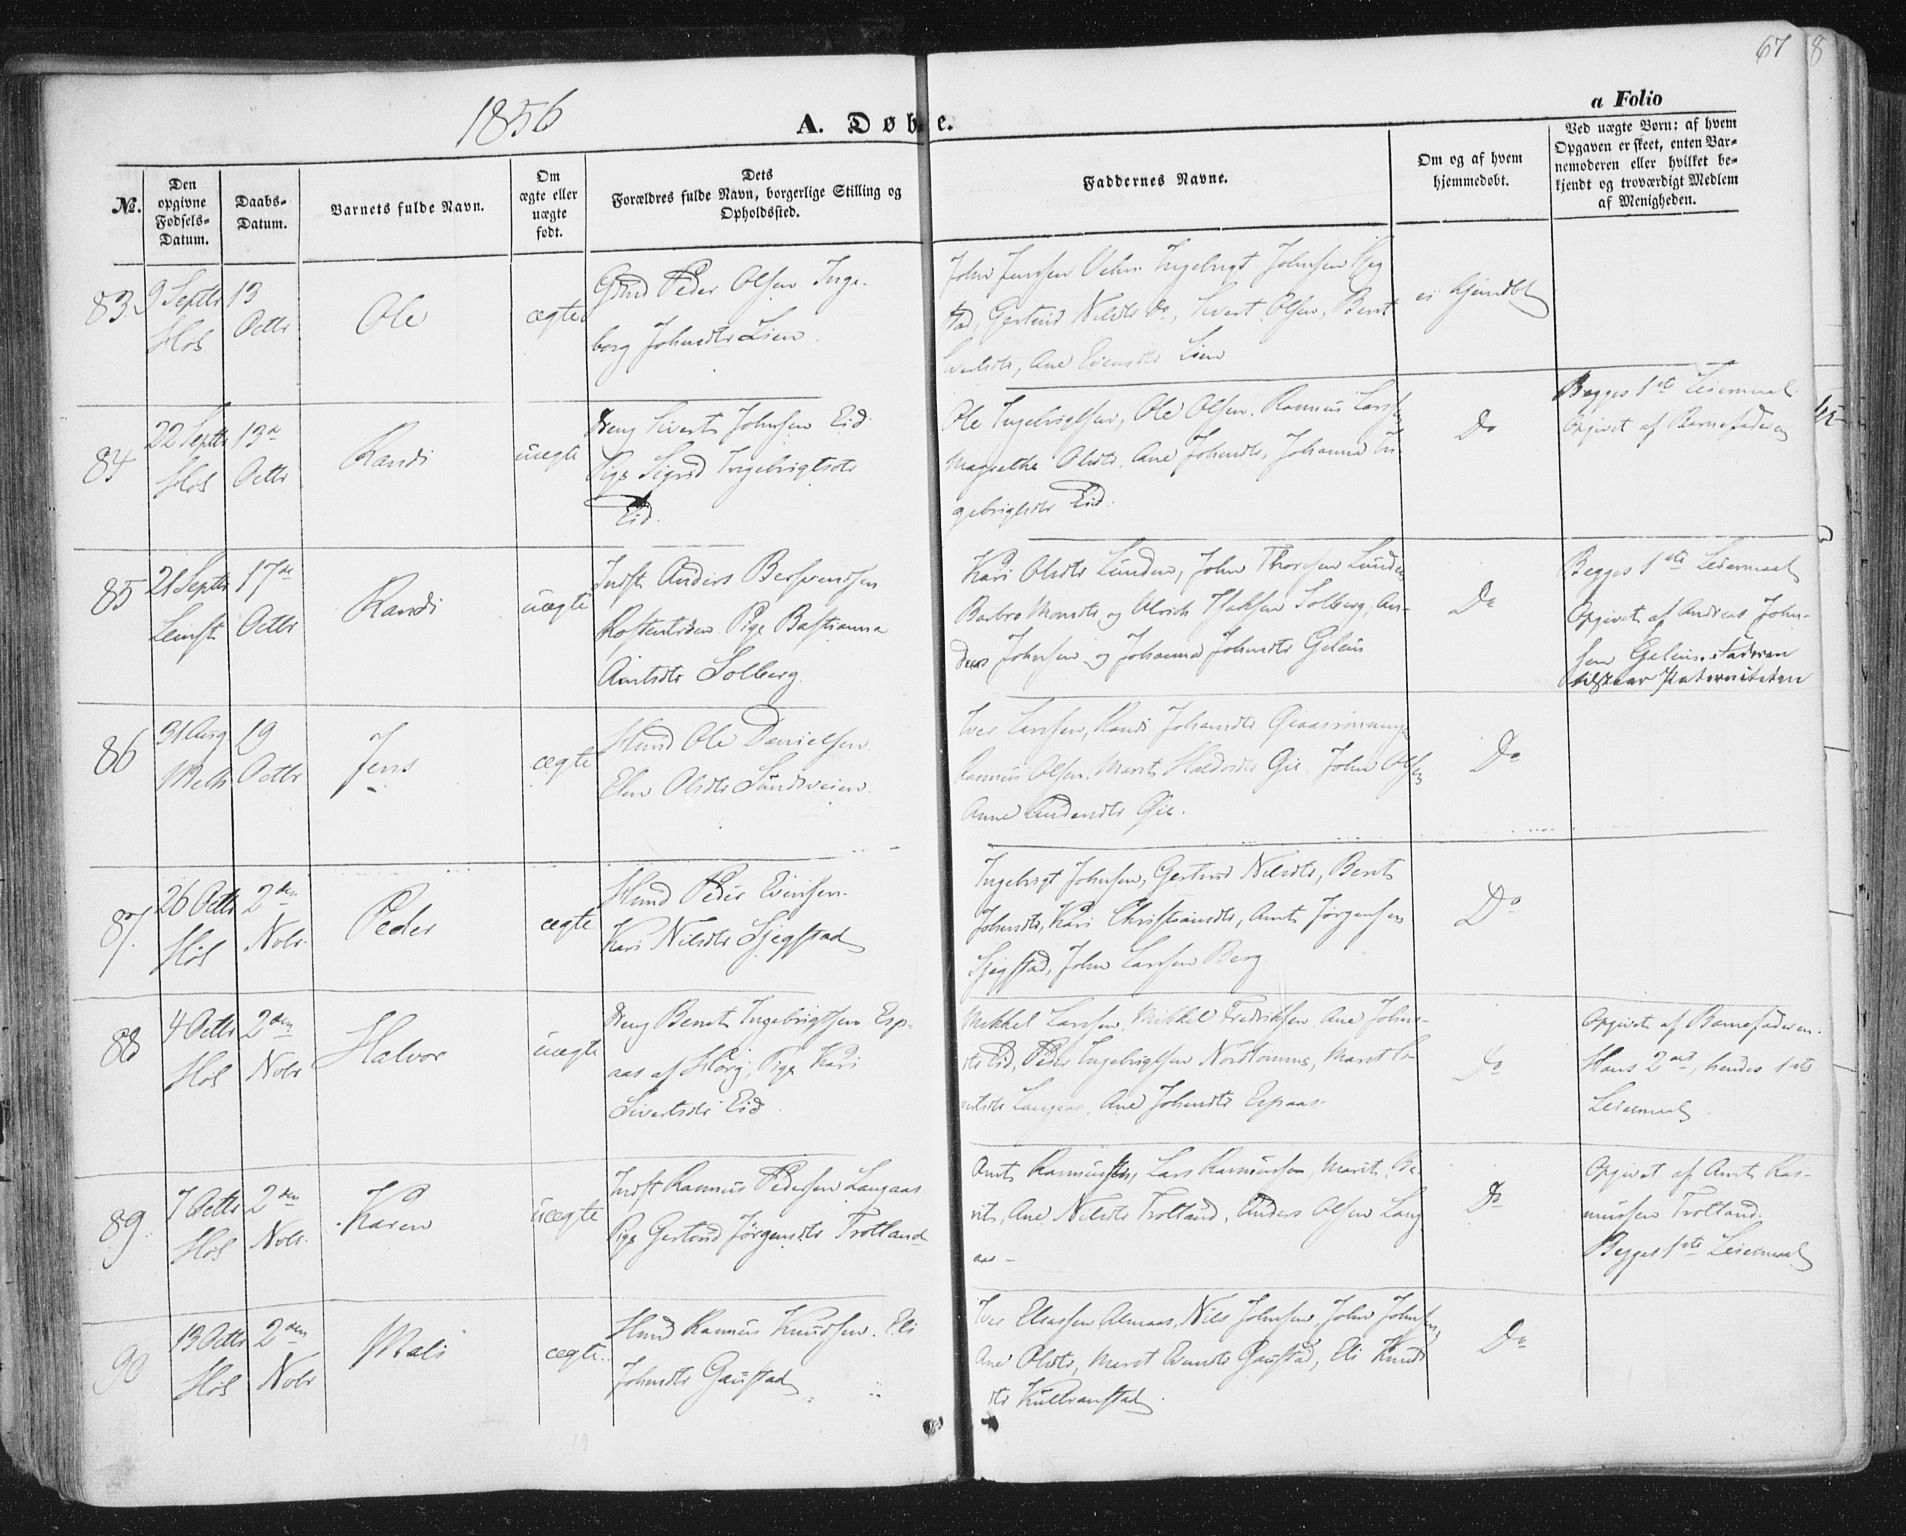 67
8
1856
A. Døbte.
a Folio
№.
Den opgivne Fødsels-Datum.
Daabs-Datum.
Barnets fulde Navn.
Om ægte eller uægte født.
Dets Forældres fulde Navn, borgerlige Stilling og Opholdssted.
Faddernes Navne.
Om og af hvem hjemmedøbt.
Ved uægte Børn: af hvem Opgaven er skeet, enten Barnemoderen eller hvilket bekjendt og troværdigt Medlem af Menigheden.
83
9 Septbr
Høl
13
Octbr
Ole
ægte
Peder Olsen. Inge-
borg Johnsdtr Lien
John Jenssen Ingebrigt Johnsen
Gertrud Nilsdtr Do, Sivert Olsen, Berit
Ane Evensdtr Lien
84
22 Septbr
Høl
13de
Octbr
Randi
uægte
Ung Sivert Johnsen Eid
Pige Sigrid Ingebrigtsdtr
Eid.
Ole Ingebrigtsen, Ole Olsen. Rasmus Larsen
Magrethe Olsdtr. Ane Johnsdtr, Johanna In-
gebrigtsdtr Eid.
Do
Begges 1ste Leiermaal.
Opgivet af Barnefaderen
85
21 Septbr
Leinst
17de
Octbr
Randi
uægte
Indst Anders Bersvendsen
Pige Bastianna
Arntsdtr Solberg
Kari Olsdtr Lunden, John Thoresen Lunden
Barbro Monsdtr, og Ulrich Isaksen Solberg, An-
ders Johnsen og Johanna Johnsdtr
Do
Begges 1ste Leiermaal
Opgivet af Andreas John-
sen Faderen
tilstaar Paterniteten
86
31 Aug
Melh
19
Octbr
Jens
ægte
Hmd Ole Danielsen
Elen Olsdtr Sundsveien
Iver Larssen, Randi Johansdtr
Rasmus Olsen. Marit John Olsen
Anne
Do
87
26 Octbr
Høl
2den
Nobr.
Peder
ægte
Hmd Peder Evensen.
Kari Nilsdtr Sjegstad
Ingebrigt Johnsen, Gertrud Nilsdtr, Berit
Johnsdtr, Kari Christiansdtr, Arnt Jørgensen
Sjegstad, John Larssen Berg.
Do
88
4 Octbr
Høl
2den
Nobr
Halvor
uægte
Ung Bernt Ingebrigtsen Esp-
aas af Pige Kari
Sivertsdtr Eid
Mikkel Larssen, Mikkel Fredriksen. Ane Johns-
dtr Eid, Peder Ingebrigtsen Marit Si-
vertsdtr Langaas. Ane Johnsdtr Espaas.
Do
Opgivet af Barnefaderen.
Hans 2det, hendes 1ste
Leiermaal.
89
7 Octbr
Høl
2den
Nobr.
Karen
uægte
Indst Rasmus Pedersen Langaas
Pige Gertrud Jørgensdtr Trotland
Arnt Rasmussen, Lars Rasmussen, Marit, Be-
rit, Ane Nilsdtr Trotland. Anders Olsen Lang
aas -
Do
Opgivet af Arnt Ras-
mussen Trotland.
Begges 1ste Leiermaal
90
13 Octbr
Høl
2den
Nobr
Mali
ægte
Hmd Rasmus Knudsen. Eli
Johnsdtr Gaustad
Iver Eliassen Almaas, Nils Johnsen, John Johnsen,
Ane Olsdtr, Marit Gaustad, Eli Knuds
dtr
Do